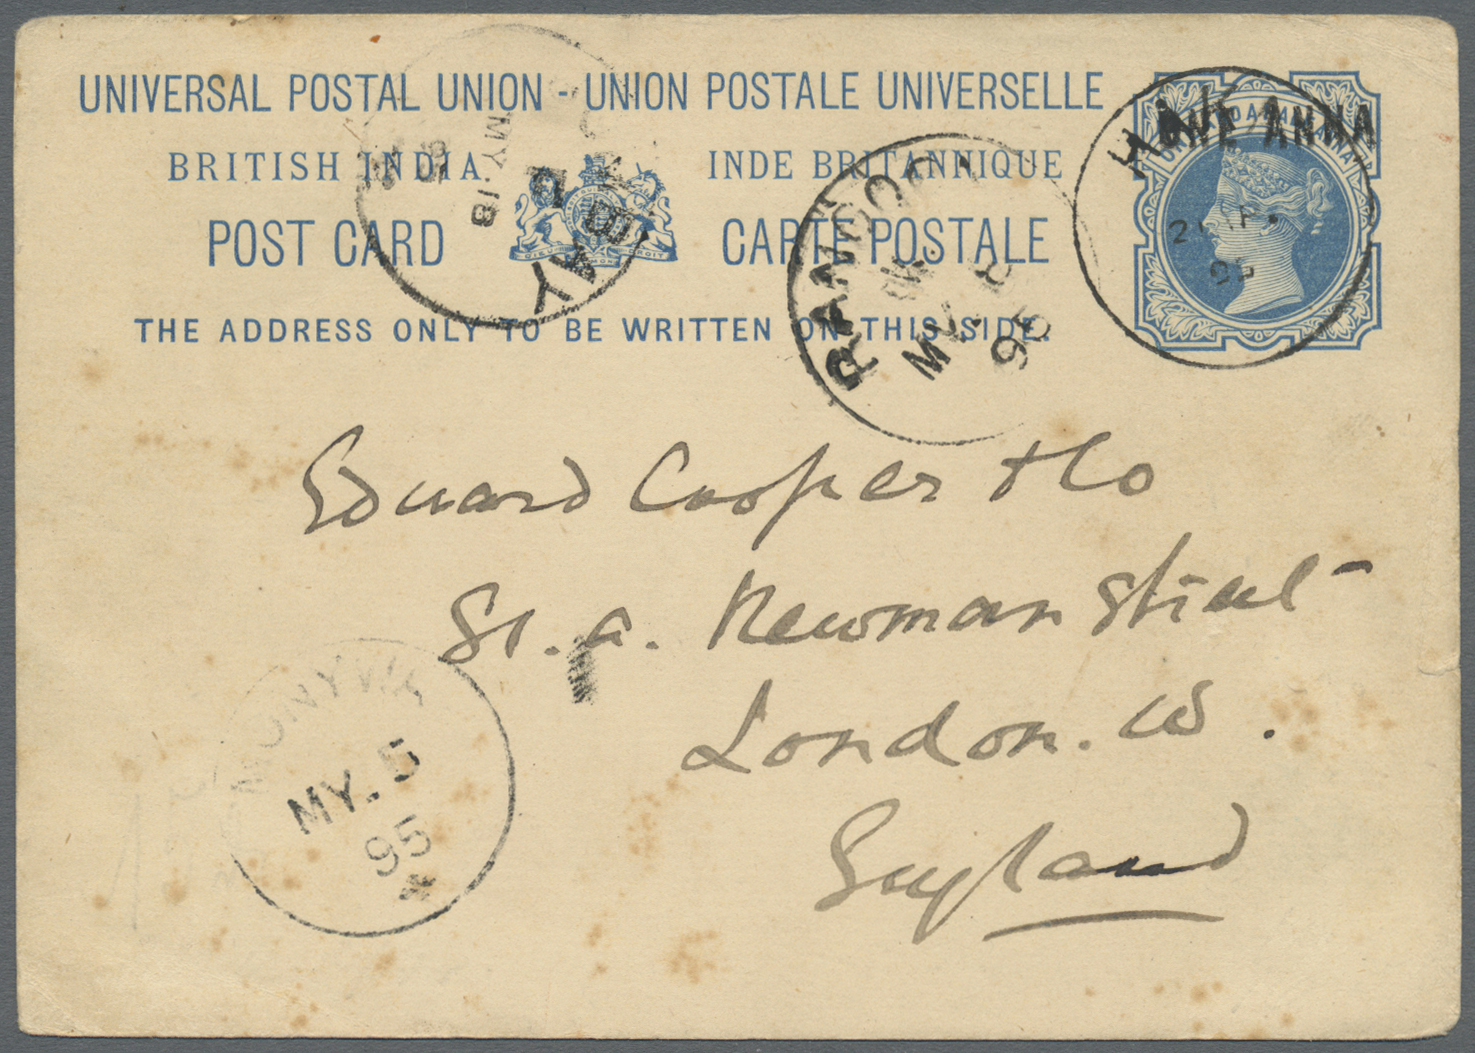 UNIVERSAL POSTAL UNION - UNION POSTALE UNIVERSELLE
BRITISH INDIA. INDE BRITANNIQUE
POST CARD CARTE POSTALE
THE ADDRESS ONLY TO BE WRITTEN ON THIS SIDE.
ONE ANNA
HAKA
95
RANGOON
MY. 8
95
MY 18
MONYWA
MY. 5
95
Edward Cooper & Co
51. a. Newman Street
London. W.
England